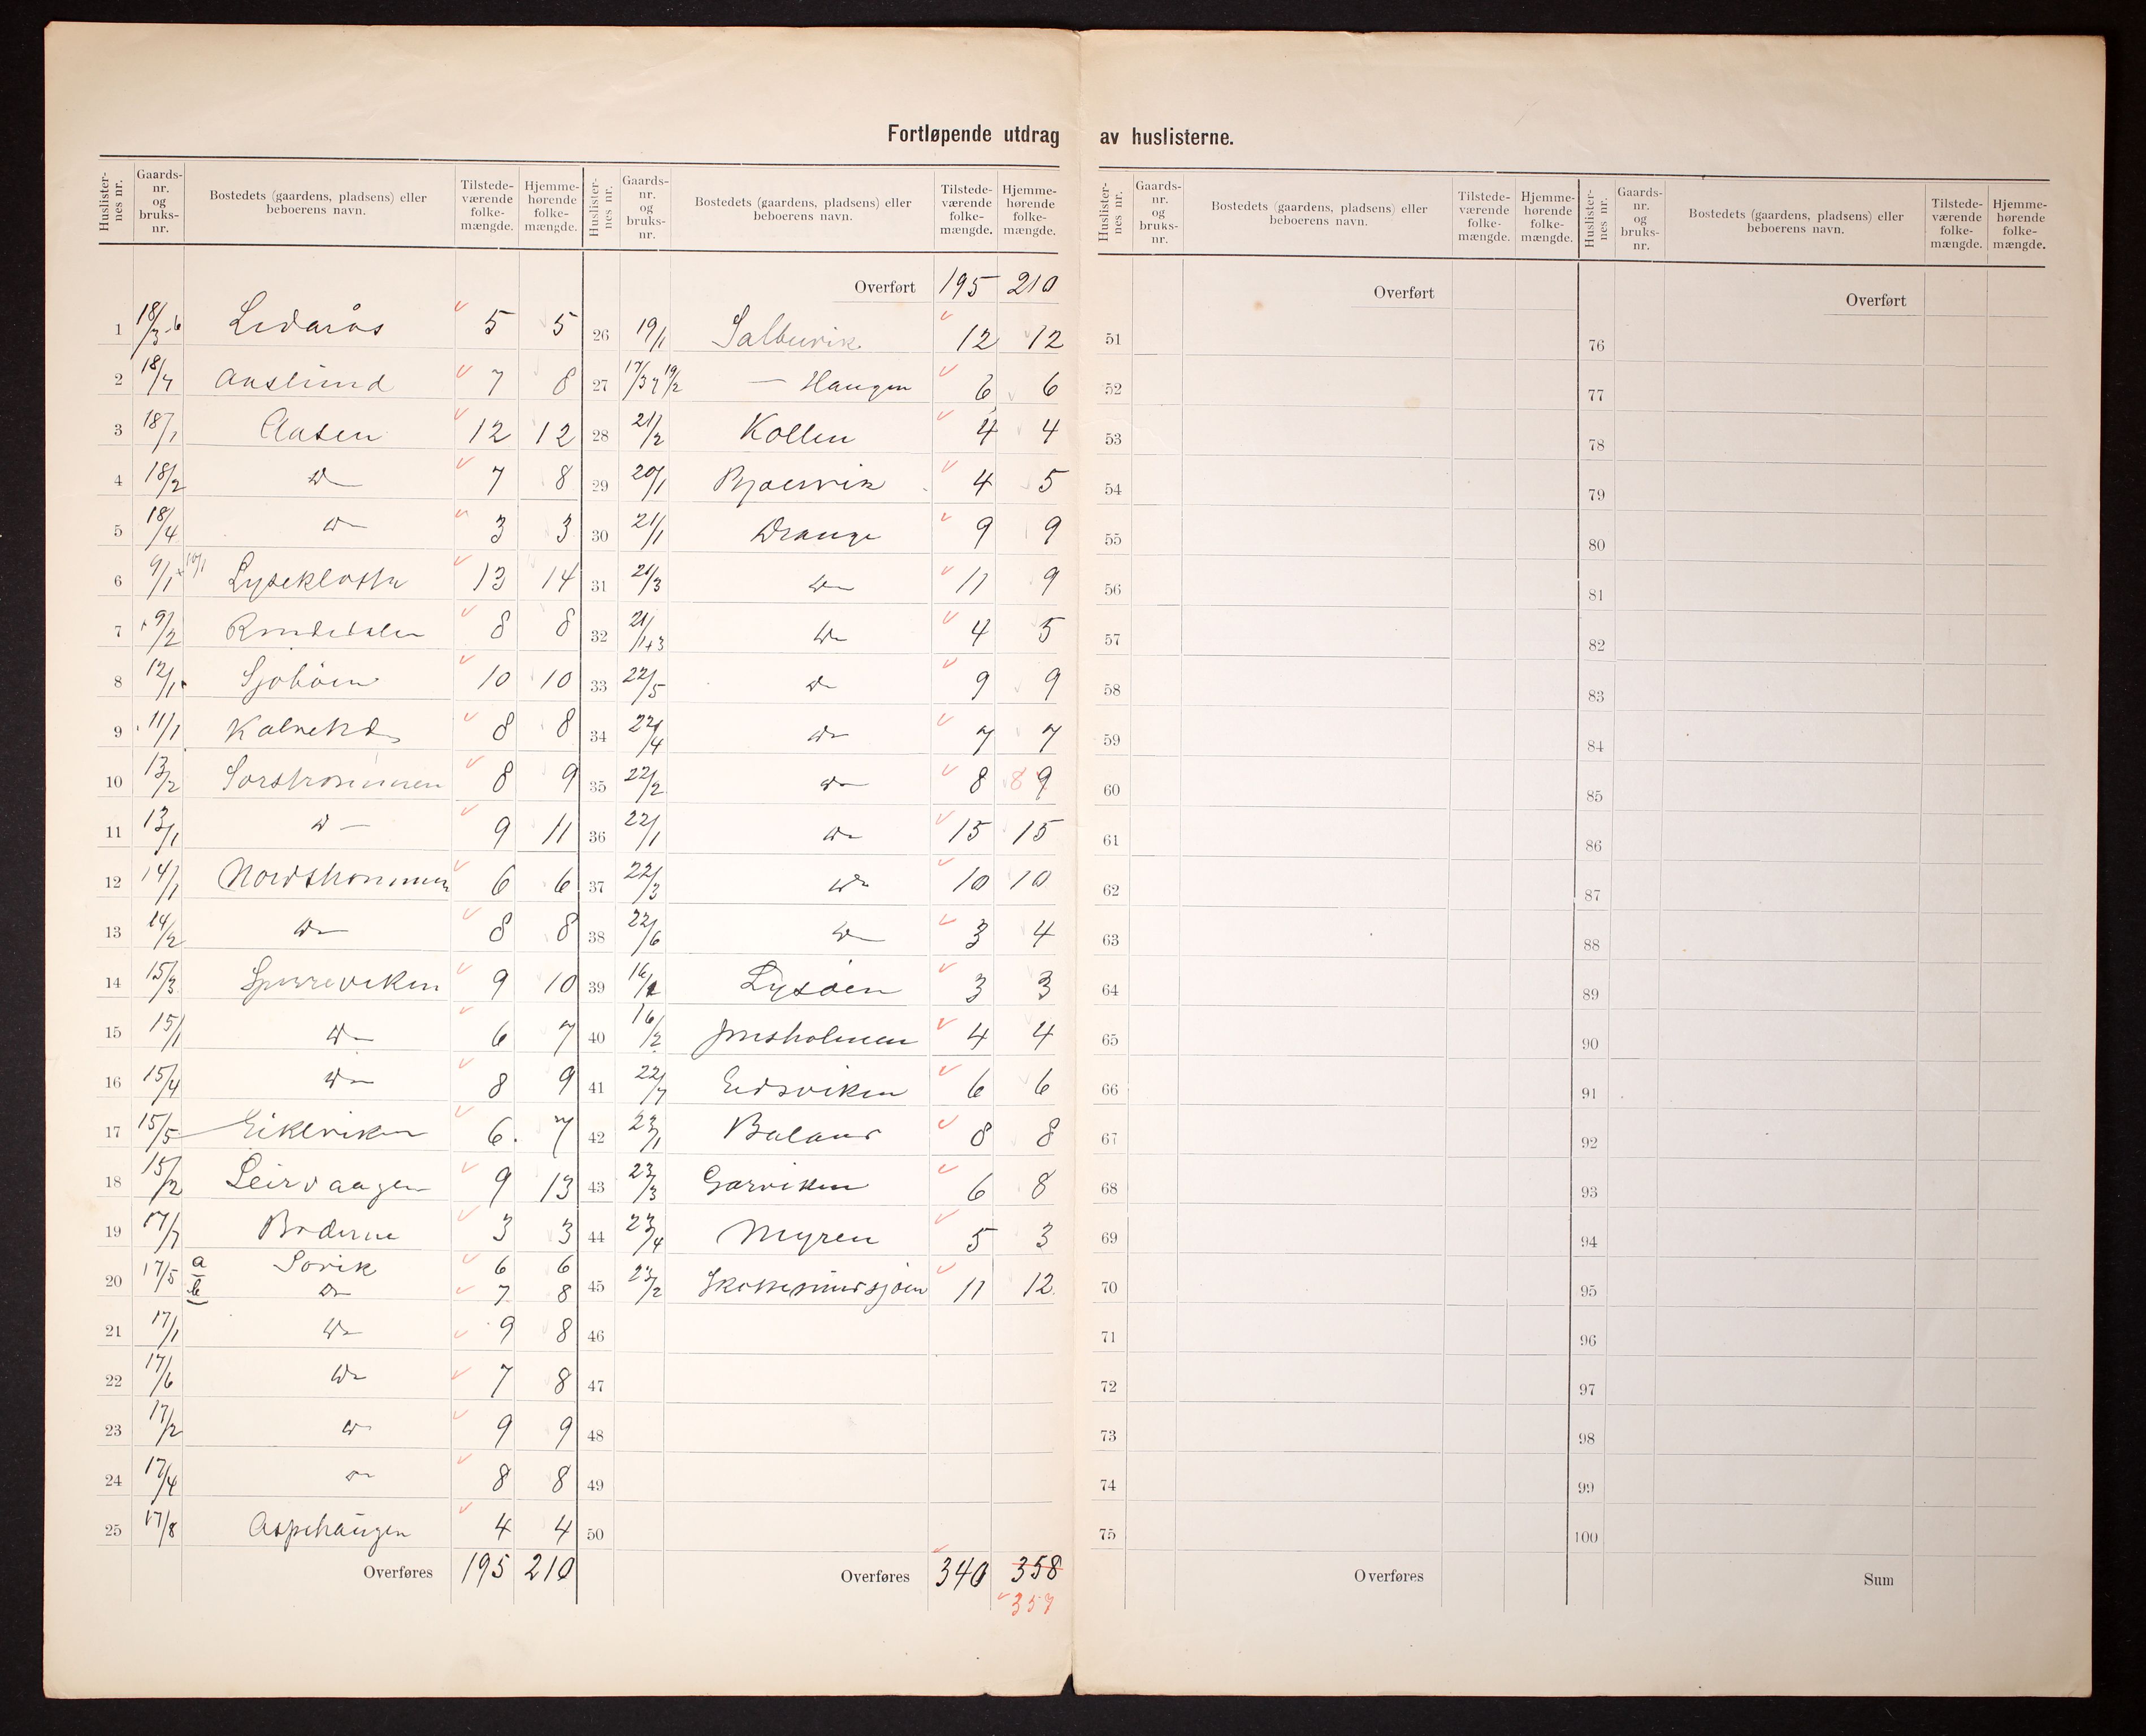 Fortløpende utdrag av huslisterne.
Huslister-nes nr. Gaards-nr. og bruks-nr. Bostedets (gaardens, pladsens) eller beboerens navn. Tilstede-værende folke-mængde. Hjemme-hørende folke-mængde.
1 18/3.6 Lidarås 5 5
2 18/7 7 8
3 18/1 Aasen 12 12
4 18/2 Do 7 8
5 18/4 Do 3 3
6 9/1 + 10/1 Lyseklostr 13 14
7 9/2 8 8
8 12/1 Sjobøen 10 10
9 11/1 8 8
10 13/2 Sørstrømmen 8 9
11 13/1 Do 9 11
12 14/1 Nordstrømmen 6 6
13 14/2 Do 8 8
14 15/3 Sperreviken 9 10
15 15/1 Do 6 7
16 15/4 Do 8 9
17 15/5 Eikeviken 6. 7
18 15/2 Leirvaagen 9 13
19 17/7 Boderne 3 3
20 17/5 a Sovik 6 6
b Do 7 8
21 17/1 Do 9 8
22 17/6 Do 7 8
23 17/2 Do 9 9
24 17/4 Do 8 8
25 17/8 Aspehaugen 4 4
Overføres 195 210
Huslister-nes nr. Gaards-nr. og bruks-nr. Bostedets (gaardens, pladsens) eller beboerens navn. Tilstede-værende folke-mængde. Hjemme-hørende folke-mængde.
Overført 195 210
26 19/1 Salbuvik 12 12
27 17/3 19/2 — Haugen 6 6
28 21/2 Kollen 4 4
29 20/1 Bjørsvik 4 5
30 21/1 Drange 9 9
31 21/3 Do 11 9
32 21/1+3 Do 4 5
33 22/5 Do 9 9
34 22/4 Do 7 7
35 22/2 Do 8 8 9
36 22/1 Do 15 15
37 22/3 Do 10 10
38 22/6 Do 3 4
39 16/1 Lysøen 3 3
40 16/2 Jmsholmen 4 4
41 22/7 Eidsviken 6 6
42 23/1 8 8
43 23/3 Garviken 6 8
44 23/4 Myren 5 3
45 23/2 11 12
46
47
48
49
50
Overføres 340 358
357
Huslister-nes nr. Gaards-nr. og bruks-nr. Bostedets (gaardens, pladsens) eller beboerens navn. Tilstede-værende folke-mængde. Hjemme-hørende folke-mængde.
Overført
51
52
53
54
55
56
57
58
59
60
61
62
63
64
65
66
67
68
69
70
71
72
73
74
75
Overføres
Huslister-nes nr. Gaards-nr. og bruks-nr. Bostedets (gaardens, pladsens) eller beboerens navn. Tilstede-værende folke-mængde. Hjemme-hørende folke-mængde.
Overført
76
77
78
79
80
81
82
83
84
85
86
87
88
89
90
91
92
93
94
95
96
97
98
99
100
Sum